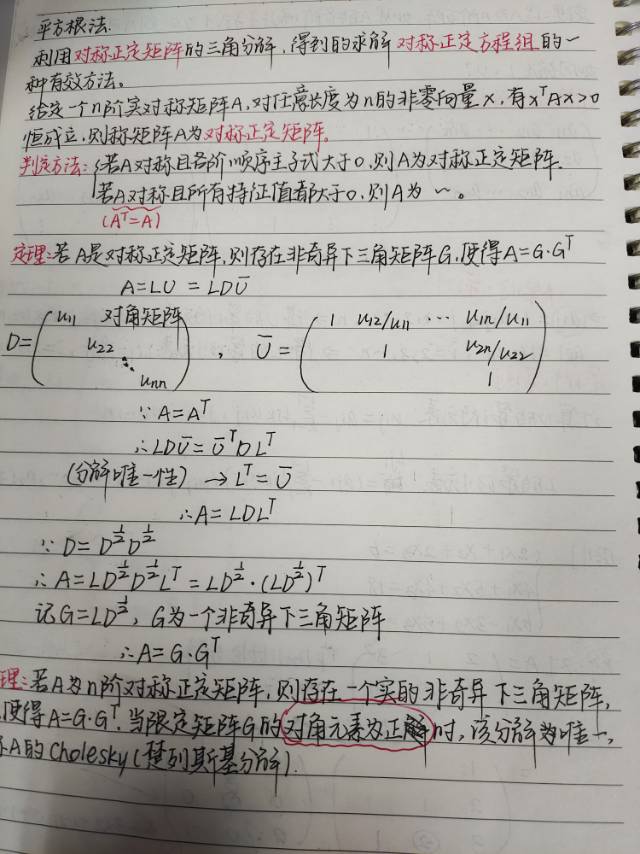 平方根法.
利用对称正定矩阵的三角分解,得到的求解对称正定方程组的一
种有效方法。
给定一个n阶实对称矩阵A,对任意长度为n的非零向量x,有xᵀAx>0
恒成立,则称矩阵A为对称正定矩阵。
判定方法:{若A对称且各阶顺序主子式大于0,则A为对称正定矩阵.
若A对称且所有特征值都大于0,则A为 〜。
(Aᵀ=A)
定理:若A是对称正定矩阵,则存在非奇异下三角矩阵G,使得A=G·Gᵀ
A=LU=LDŪ
D=(u₁₁ 对角矩阵 u₂₂ ⋱ uₙₙ) , Ū=(1 u₁₂/u₁₁ ⋯ u₁ₙ/u₁₁ 1 u₂ₙ/u₂₂ 1)
∵A=Aᵀ
∴LDŪ=ŪᵀDLᵀ
(分解唯一性) →Lᵀ=Ū
∴A=LDLᵀ
∵D=D^½D^½
∴A=LD^½D^½Lᵀ=LD^½·(LD^½)ᵀ
记G=LD^½,G为一个非奇异下三角矩阵
∴A=G·Gᵀ
理:若A为n阶对称正定矩阵,则存在一个实的非奇异下三角矩阵,
使得A=G·Gᵀ.当限定矩阵G的对角元素为正时,该分解为唯一,
A的Cholesky(楚列斯基分解).